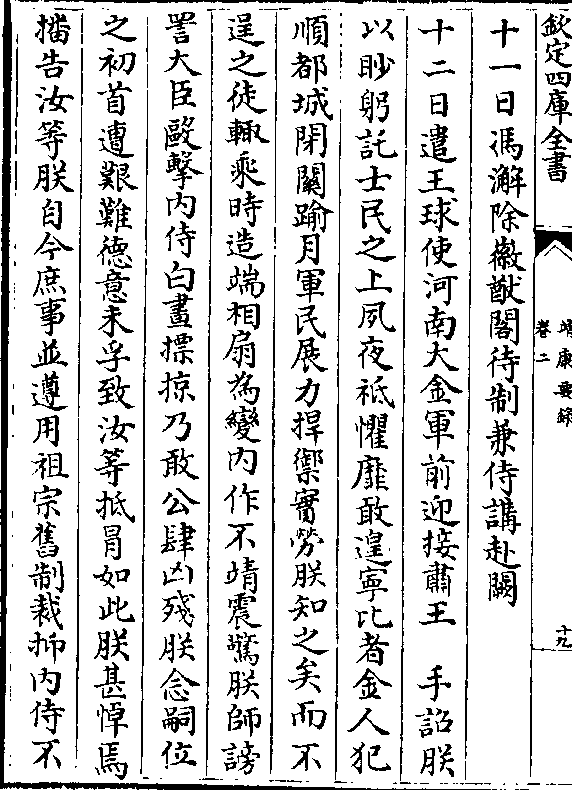 欽定四庫全書
靖康要錄
卷二
十九
十一日馮澥除徽猷閣待制兼侍講赴闕
十二日遣王球使河南大金軍前迎接肅王　手詔朕
以眇躬託士民之上夙夜祗懼靡敢遑寧比者金人犯
順都城閉關踰月軍民展力捍禦實勞朕知之矣而不
逞之徒輒乘時造端相扇為變内作不靖震驚朕師謗
詈大臣毆擊内侍白晝摽掠乃敢公肆凶殘朕念嗣位
之初首遭艱難德意未孚致汝等抵冒如此朕甚悼焉
播告汝等朕自今庶事並遵用祖宗舊制裁抑内侍不